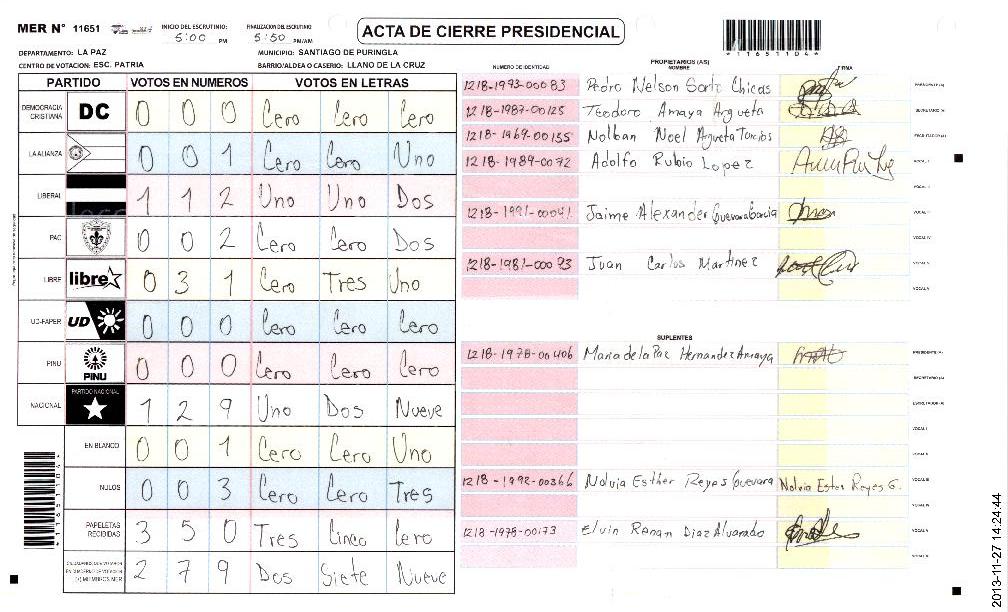 MER N° 11651 INICIO DEL ESCRUTINIO 5:00 PM FINALIZACION DEL ESCRUTINIO 5:50 PM/AM ACTA DE CIERRE PRESIDENCIAL
*11651104*
DEPARTAMENTO: LA PAZ MUNICIPIO: SANTIAGO DE PURINGLA
CENTRO DE VOTACION: ESC. PATRIA BARRIO/ALDEA O CASERIO: LLANO DE LA CRUZ
PARTIDO VOTOS EN NUMEROS VOTOS EN LETRAS
DEMOCRACIA CRISTIANA DC 0 0 0 Cero Cero Cero
LA ALIANZA 0 0 1 Cero Cero Uno
LIBERAL 1 1 2 Uno Uno Dos
PAC 0 0 2 Cero Cero Dos
LIBRE libre 0 3 1 Cero Tres Uno
UD-FAPER UD 0 0 0 Cero Cero Cero
PINU PINU 0 0 0 Cero Cero Cero
NACIONAL PARTIDO NACIONAL 1 2 9 Uno Dos Nueve
EN BLANCO 0 0 1 Cero Cero Uno
NULOS 0 0 3 Cero Cero Tres
PAPELETAS RECIBIDAS 3 5 0 Tres Cinco Cero
CIUDADANOS QUE VOTARON EN CUADERNO DE VOTACION (+) MIEMBROS MER 2 7 9 Dos Siete Nueve
PROPIETARIOS (AS)
NUMERO DE IDENTIDAD NOMBRE FIRMA
1218-1973-00083 Pedro Nelson Sorto Chicas PRESIDENTE (A)
1218-1987-00125 Teodoro Amaya Argueta SECRETARIO (A)
1218-1969-00155 Nolban Noel Argueta Turcios ESCRUTADOR (A)
1218-1989-0072 Adolfo Rubio Lopez VOCAL I
VOCAL II
1218-1991-00041 Jaime Alexander Guevara Garcia VOCAL III
VOCAL IV
1218-1981-00093 Juan Carlos Martinez VOCAL V
VOCAL VI
SUPLENTES
1218-1978-00406 Maria de la Paz Hernandez Amaya PRESIDENTE (A)
SECRETARIO (A)
ESCRUTADOR (A)
VOCAL I
VOCAL II
1218-1992-00366 Nolvia Esther Reyes Guevara Nolvia Ester Reyes G. VOCAL III
VOCAL IV
1218-1978-00173 Elvin Renan Diaz Alvarado VOCAL V
VOCAL VI
2013-11-27 14:24:44